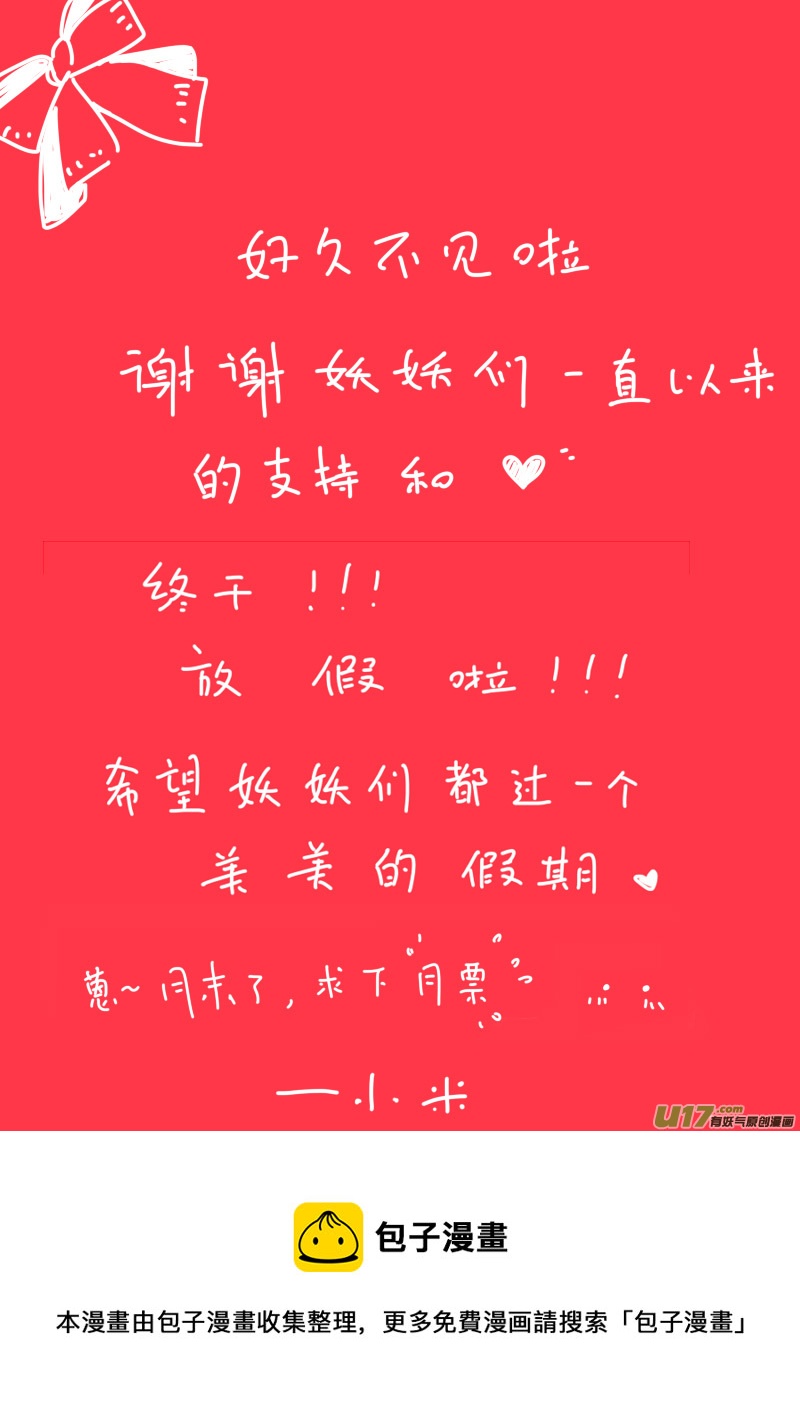 好久不见啦
谢谢妖妖们一直以来
的支持和
终于!!!
放假啦!!!
希望妖妖们都过一个
美美的假期
葱~月末了,求下月票
——小米
U17.com
有妖气原创漫画
包子漫畫
本漫畫由包子漫畫收集整理,更多免費漫画請搜索「包子漫畫」